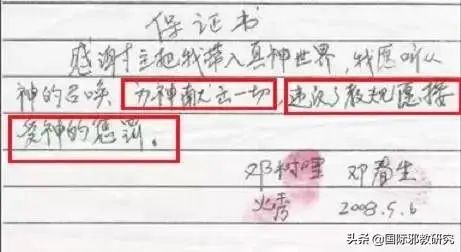 保证书
感谢主把我带入真神世界,我愿听从
神的召唤 为神献出一切,违反了教规愿接
受神的惩罚。
邓树哩 邓春生
火秀 2008.5.6
头条 @国际邪教研究